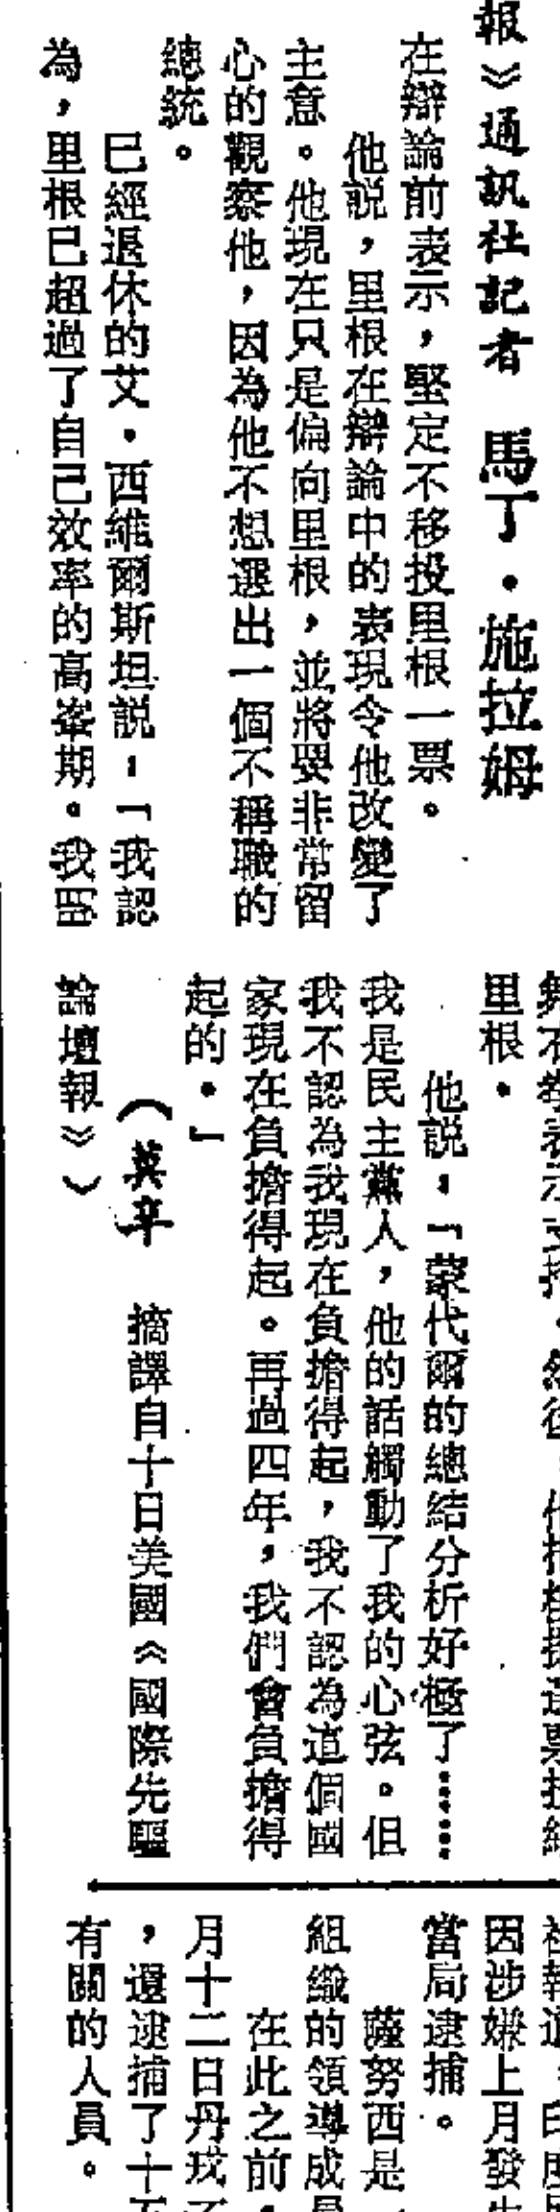 報》通訊社記者 馬丁·施拉姆
在辯論前表示，堅定不移投里根一票。
他說，里根在辯論中的表現令他改變了
主意。他現在只是偏向里根，並將要非常留
心的觀察他，因為他不想選出一個不稱職的
總統。
已經退休的艾·西維爾斯坦說：「我認
為，里根已超過了自己效率的高峯期。我
里根。
他說：「蒙代爾的總結分析好極了……
我是民主黨人，他的話觸動了我的心弦。但
我不認為我現在負擔得起，我不認為這個國
家現在負擔得起。再過四年，我們會負擔得
起的。」
（英辛 摘譯自十日美國《國際先驅
論壇報》）
因涉嫌上月發
當局逮捕。
薩努西是
組織的領導成
在此之前
月十二日丹戎
，還逮捕了十
有關的人員。